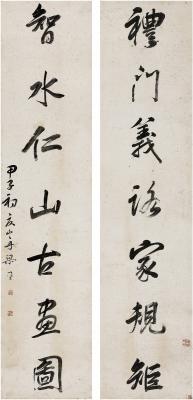 禮門義路家規矩
智水仁山古畫圖
甲子初夏山舟梁